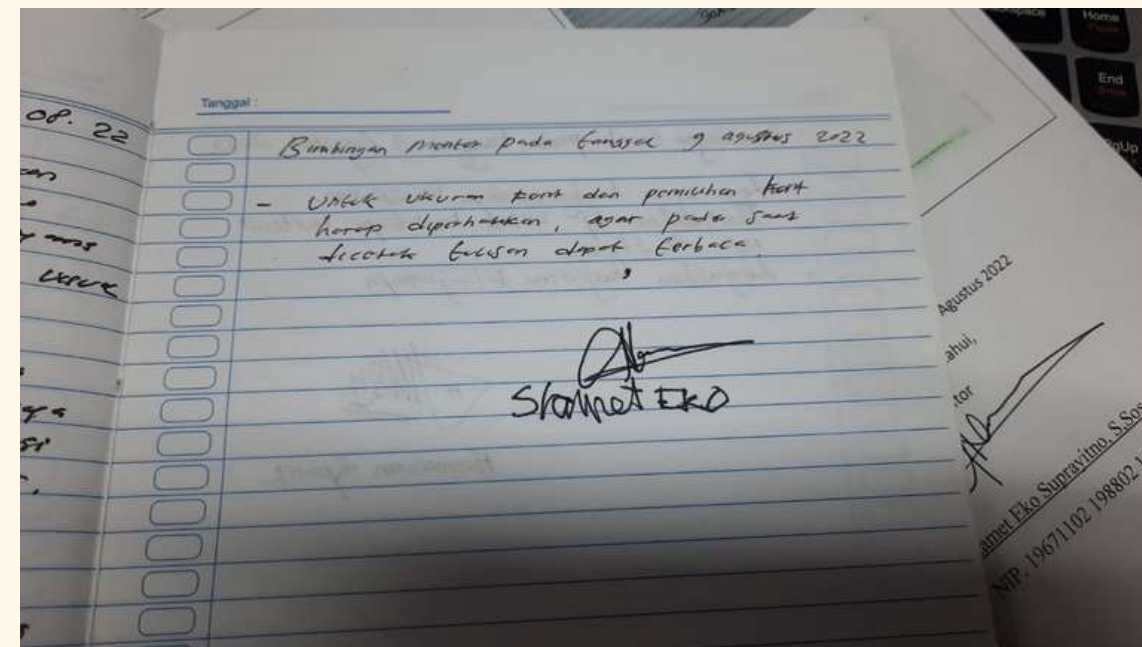 08. 22
ya
Tanggal :
Bimbingan Mentor pada tanggal 9 agustus 2022
- Untuk ukuran font dan pemilihan font
harap diperhatikan, agar pada saat
dicetak tulisan dapat terbaca
Slamet EKO
Home
End
Agustus 2022
ahui,
tor
amet Eko Suprayitno, S.Sos
NIP. 19671102 198802 1